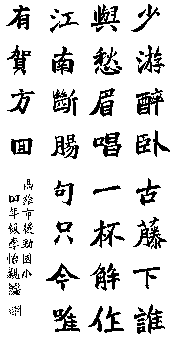 少游醉臥古藤下誰
與愁眉唱一杯解作
江南斷腸句只今唯
有賀方回
高雄市後勁國小
四年級李怡親